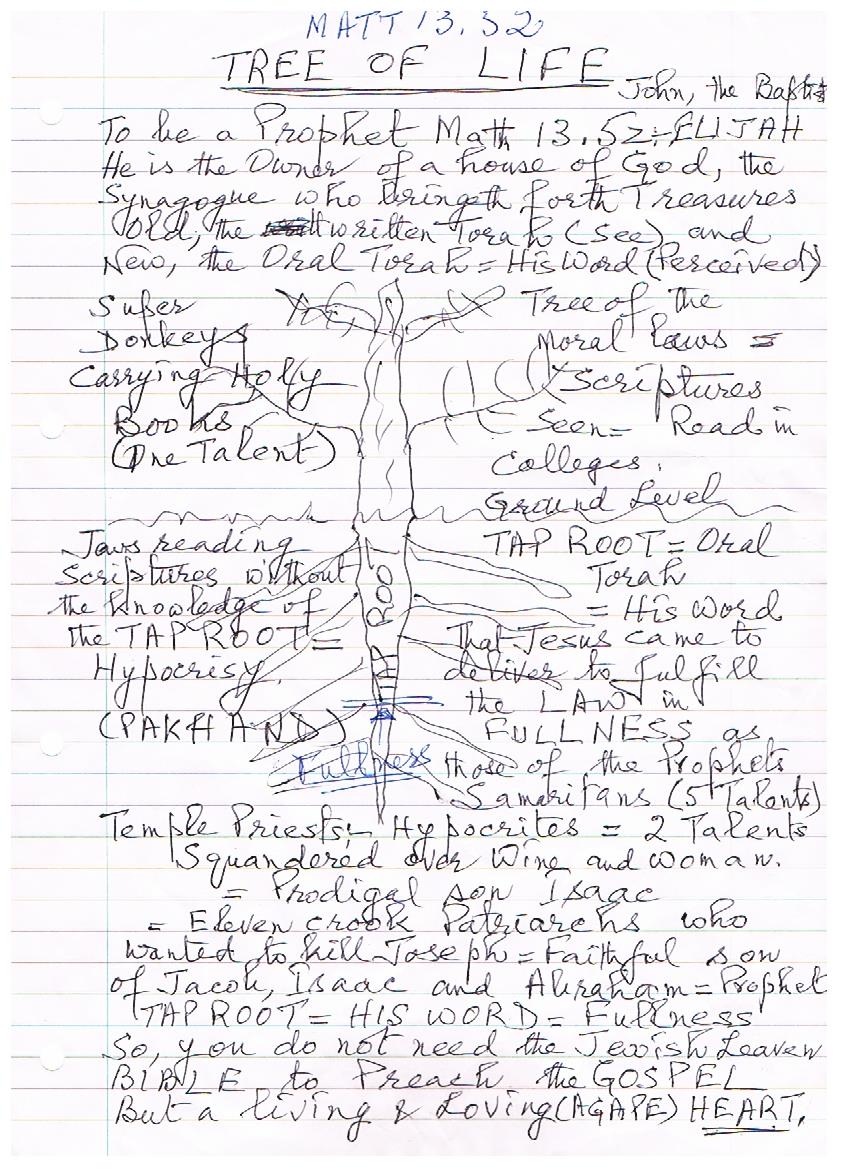 MATT 13.52
TREE OF LIFE
John, the Baptist
To be a Prophet Math 13.52:- ELIJAH
He is the Owner of a house of God, the
Synagogue who bringeth forth Treasures
Old, the written Torah (See) and
New, the Oral Torah = His Word (Perceived)
Super
Donkeys
Carrying Holy
Books
(One Talent)
Tree of the
Moral Laws =
Scriptures
Seen = Read in
Colleges.
Ground Level
Jews reading
Scriptures without
the knowledge of
the TAP ROOT =
Hypocrisy.
(PAKHAND)
TAP ROOT
Fullness
TAP ROOT = Oral
Torah
= His word
That Jesus came to
deliver to fulfill
the LAW in
FULLNESS as
those of the Prophets
Samaritans (5 Talents)
Temple Priests:- Hypocrites = 2 Talents
Squandered over Wine and woman.
= Prodigal son Isaac
= Eleven crook Patriarchs who
wanted to kill Joseph = Faithful son
of Jacob, Isaac and Abraham = Prophet
TAP ROOT = HIS WORD = Fullness
So, you do not need the Jewish Leaven
BIBLE to Preach the GOSPEL
But a living & Loving (AGAPE) HEART.